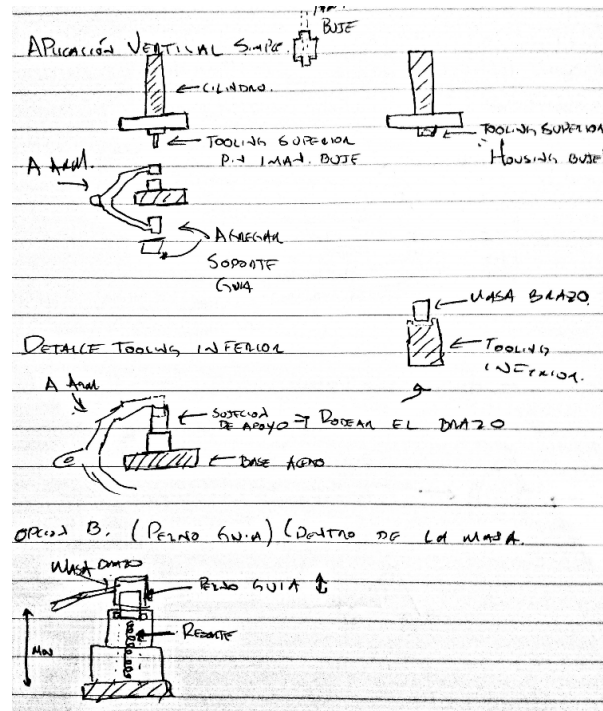 BUJE
APLICACIÓN VERTICAL SIMPLE.
CILINDRO.
TOOLING SUPERIOR
PIN IMAN. BUJE
TOOLING SUPERIOR
HOUSING BUJE
A ARM.
AGREGAR
SOPORTE
GUIA
MASA BRAZO
TOOLING
INFERIOR.
DETALLE TOOLING INFERIOR
A ARM
SUJECION
DE APOYO → RODEAR EL BRAZO
BASE ACERO
OPCION B. (PERNO GUIA) (DENTRO DE LA MASA.
MASA BRAZO
PERNO GUIA ↕
RESORTE